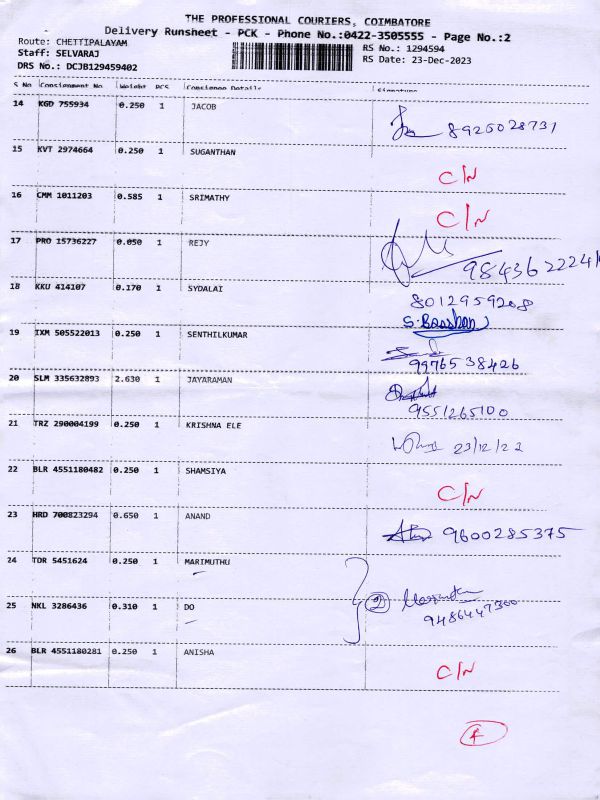 THE PROFESSIONAL COURIERS, COIMBATORE
Delivery Runsheet - PCK - Phone No.:0422-3505555 - Page No.:2
Route: CHETTIPALAYAM
RS No.: 1294594
Staff: SELVARAJ
RS Date: 23-Dec-2023
DRS No.: DCJB129459402
S No Consignment No Weight PCS Consignee Details Signature
14 KGD 755934 0.250 1 JACOB 8925028731
15 KVT 2974664 0.250 1 SUGANTHAN C/N
16 CMM 1011203 0.585 1 SRIMATHY C/N
17 PRO 15736227 0.050 1 REJY
18 KKU 414107 0.170 1 SYDALAI 8012959208
19 TXM 505522013 0.250 1 SENTHILKUMAR 9976538426
20 SLM 335632893 2.630 1 JAYARAMAN 9551265100
21 TRZ 290004199 0.250 1 KRISHNA ELE 23/12/23
22 BLR 4551180482 0.250 1 SHAMSIYA C/N
23 HRD 700823294 0.650 1 ANAND 9600285375
24 TDR 5451624 0.250 1 MARIMUTHU
25 NKL 3286436 0.310 1 DO 2 9486447300
26 BLR 4551180281 0.250 1 ANISHA C/N